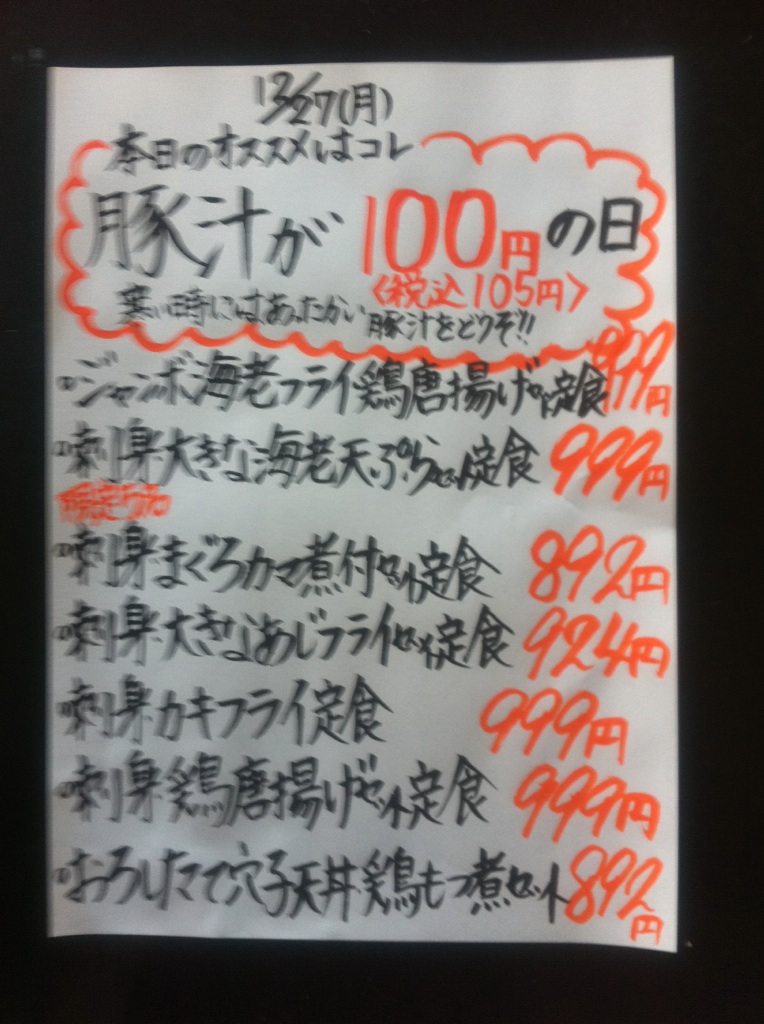 12/27(月)
本日のオススメはコレ
豚汁が100円の日
〈税込105円〉
寒い時にはあったかい豚汁をどうぞ!!
・ジャンボ海老フライ鶏唐揚げセット定食 999円
・刺身大きな海老天ぷらセット定食 999円
限定
・刺身まぐろカマ煮付セット定食 892円
・刺身大きなあじフライセット定食 924円
・刺身カキフライ定食 999円
・刺身鶏唐揚げセット定食 999円
・おろしたて穴子天丼鶏もつ煮セット 892円